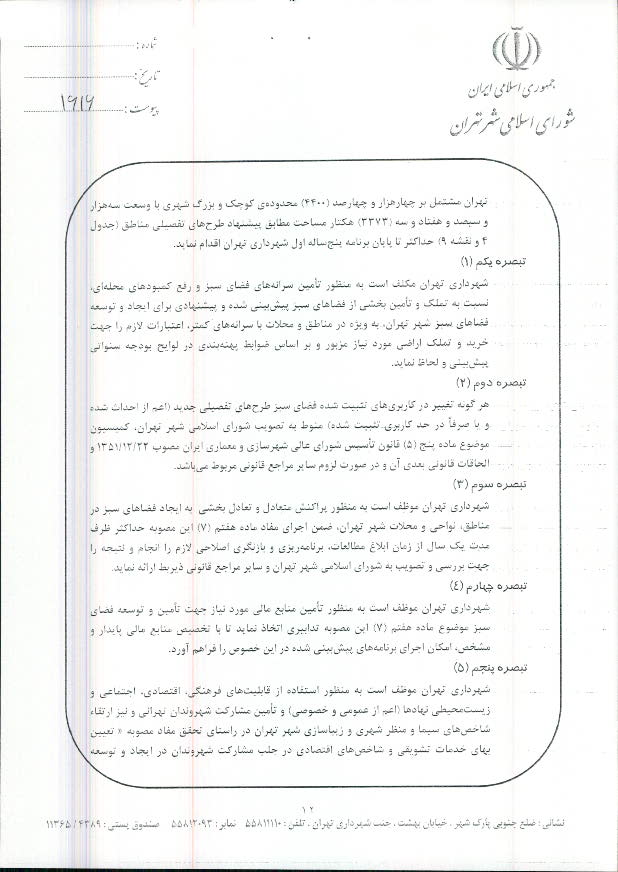 جمهوری اسلامی ایران
شورای اسلامی شهر تهران
شماره :
تاریخ :
پیوست :
تهران مشتمل بر چهارهزار و چهارصد (۴۴۰۰) محدوده‌ی کوچک و بزرگ شهری با وسعت سه‌هزار
و سیصد و هفتاد و سه (۳۳۷۳) هکتار مساحت مطابق پیشنهاد طرح‌های تفصیلی مناطق (جدول
۴ و نقشه ۹) حداکثر تا پایان برنامه پنج‌ساله اول شهرداری تهران اقدام نماید.
تبصره یکم (۱)
شهرداری تهران مکلف است به منظور تأمین سرانه‌های فضای سبز و رفع کمبودهای محله‌ای،
نسبت به تملک و تأمین بخشی از فضاهای سبز پیش‌بینی شده و پیشنهادی برای ایجاد و توسعه
فضاهای سبز شهر تهران، به ویژه در مناطق و محلات با سرانه‌های کمتر، اعتبارات لازم را جهت
خرید و تملک اراضی مورد نیاز مزبور و بر اساس ضوابط پهنه‌بندی در لوایح بودجه سنواتی
پیش‌بینی و لحاظ نماید.
تبصره دوم (۲)
هر گونه تغییر در کاربری‌های تثبیت شده فضای سبز طرح‌های تفصیلی جدید (اعم از احداث شده
و یا صرفاً در حد کاربری تثبیت شده) منوط به تصویب شورای اسلامی شهر تهران، کمیسیون
موضوع ماده پنج (۵) قانون تأسیس شورای عالی شهرسازی و معماری ایران مصوب ۱۳۵۱/۱۲/۲۲ و
الحاقات قانونی بعدی آن و در صورت لزوم سایر مراجع قانونی مربوط می‌باشد.
تبصره سوم (۳)
شهرداری تهران موظف است به منظور پراکنش متعادل و تعادل بخشی به ایجاد فضاهای سبز در
مناطق، نواحی و محلات شهر تهران، ضمن اجرای مفاد ماده هفتم (۷) این مصوبه حداکثر ظرف
مدت یک سال از زمان ابلاغ مطالعات، برنامه‌ریزی و بازنگری اصلاحی لازم را انجام و نتیجه را
جهت بررسی و تصویب به شورای اسلامی شهر تهران و سایر مراجع قانونی ذیربط ارائه نماید.
تبصره چهارم (۴)
شهرداری تهران موظف است به منظور تأمین منابع مالی مورد نیاز جهت تأمین و توسعه فضای
سبز موضوع ماده هفتم (۷) این مصوبه تدابیری اتخاذ نماید تا با تخصیص منابع مالی پایدار و
مشخص، امکان اجرای برنامه‌های پیش‌بینی شده در این خصوص را فراهم آورد.
تبصره پنجم (۵)
شهرداری تهران موظف است به منظور استفاده از قابلیت‌های فرهنگی، اقتصادی، اجتماعی و
زیست‌محیطی نهادها (اعم از عمومی و خصوصی) و تأمین مشارکت شهروندان تهرانی و نیز ارتقاء
شاخص‌های سیما و منظر شهری و زیباسازی شهر تهران در راستای تحقق مفاد مصوبه « تعیین
بهای خدمات تشویقی و شاخص‌های اقتصادی در جلب مشارکت شهروندان در ایجاد و توسعه
۱۲
نشانی : ضلع جنوبی پارک شهر ، خیابان بهشت ، جنب شهرداری تهران ، تلفن : ۵۵۸۱۱۱۱۰ نمابر : ۵۵۸۱۲۰۹۳ صندوق پستی : ۴۳۸۹ / ۱۱۳۶۵